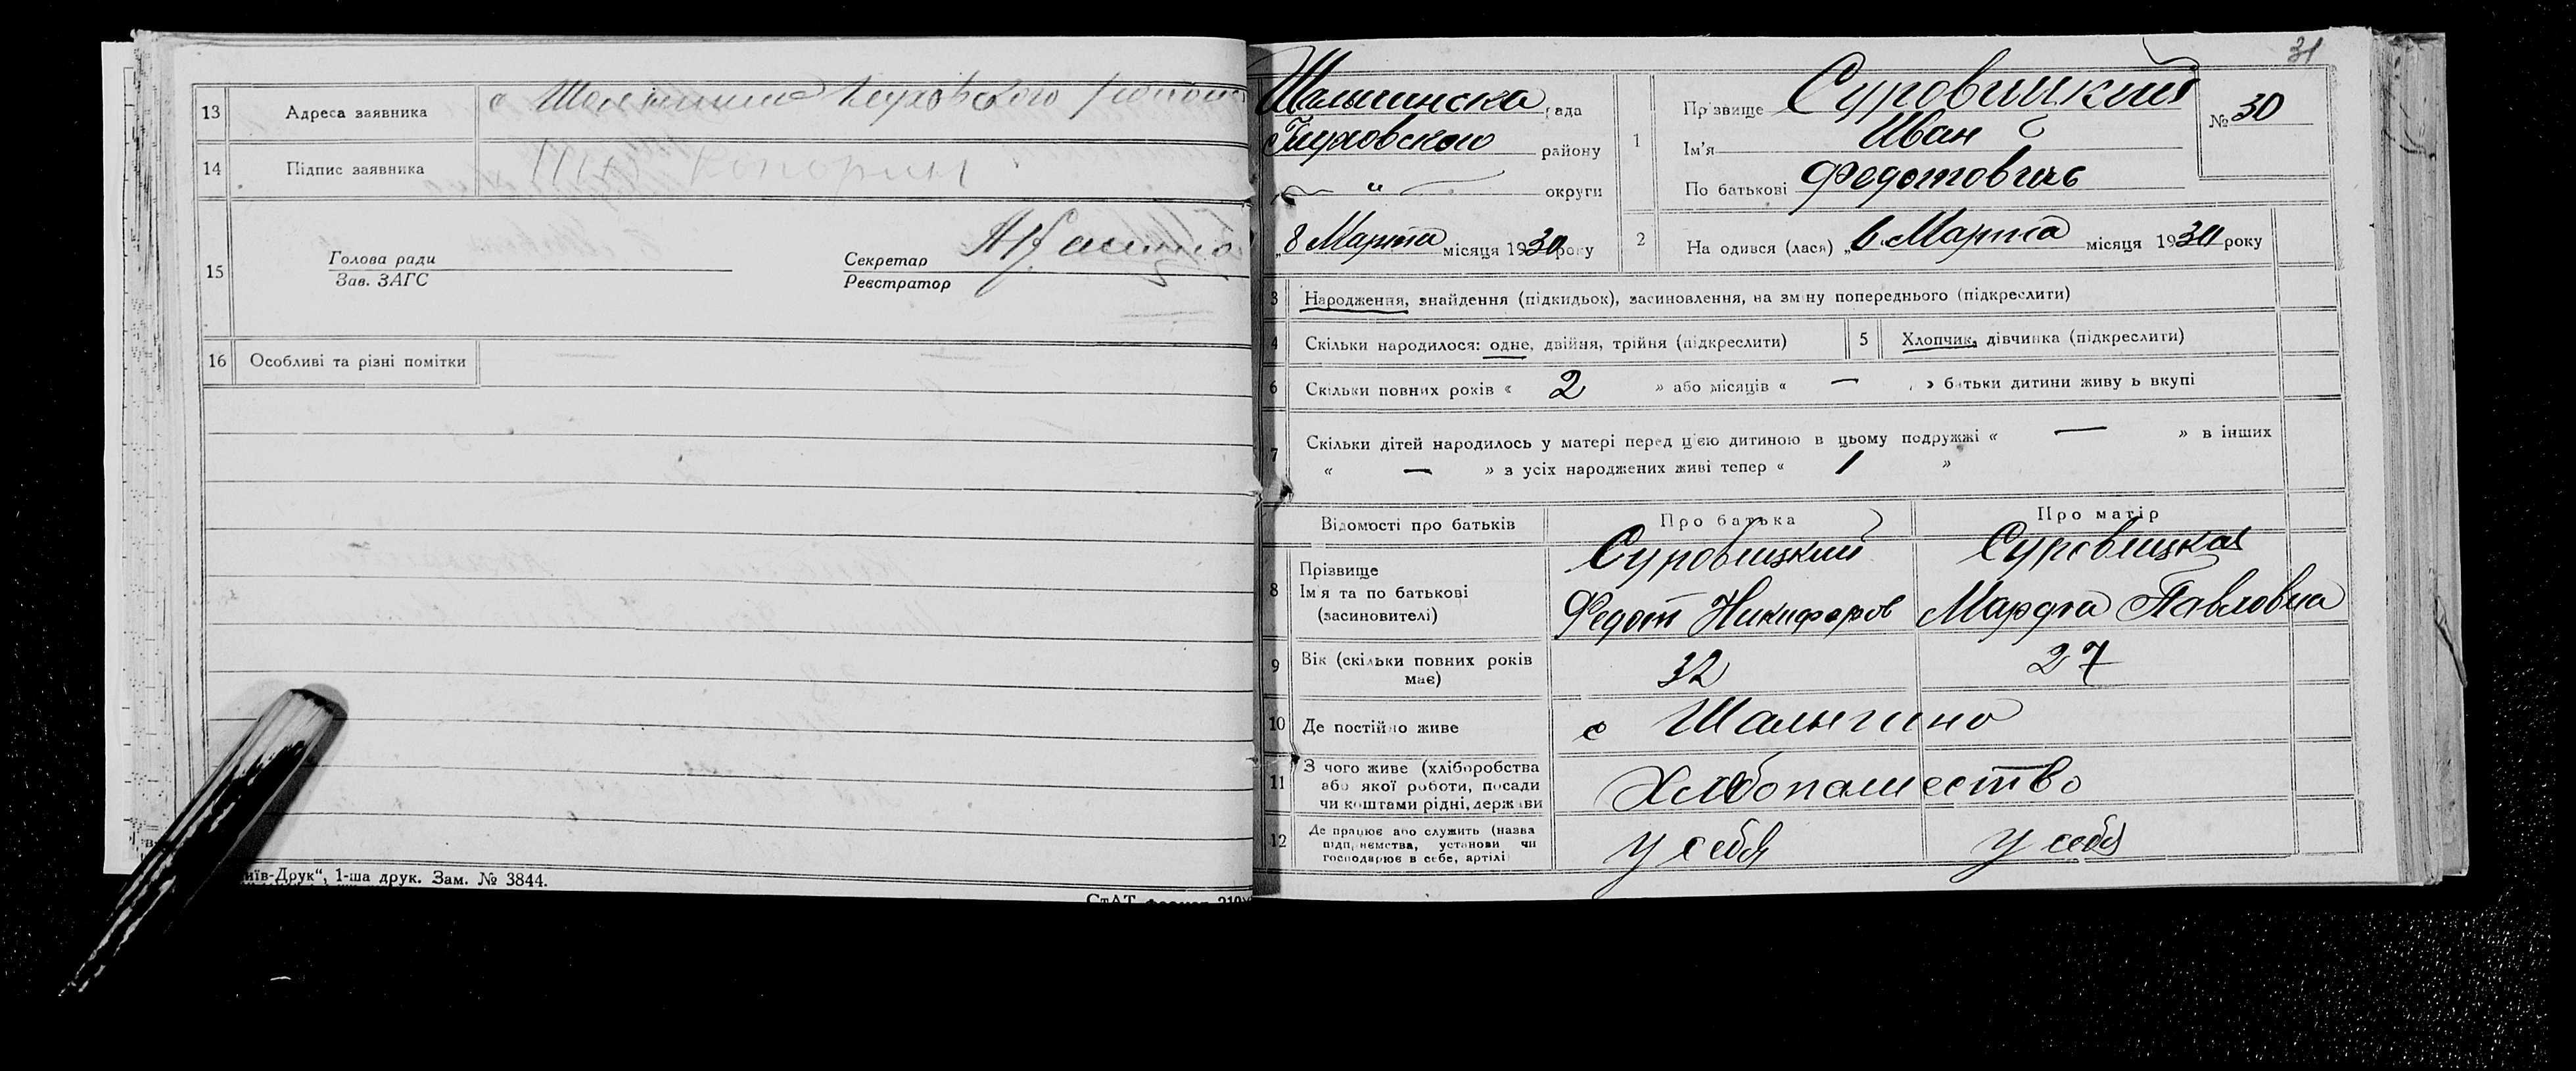 13 Адреса заявника с Шалыгино Глуховского района
14 Підпис заявника
15 Голова ради
Зав. ЗАГС
Секретар
Реєстратор
16 Особливі та різні помітки
иїв-Друк“, 1-ша друк. Зам. № 3844.
СтАТ формат 210
31
Шалыгинска рада
Глуховского району
" округи
„8 Марта місяця 1930 року
1 Прізвище Суровицкий
Ім'я Иван
По батькові Федотович
№ 30
2 Народився (лася) „6 Марта місяця 1930 року
3 Народження, знайдення (підкидьок), засиновлення, на зміну попереднього (підкреслити)
4 Скільки народилося: одне, двійня, трійня (підкреслити) 5 Хлопчик, дівчинка (підкреслити)
6 Скільки повних років « 2 » або місяців « — » батьки дитини живуть вкупі
7 Скільки дітей народилось у матері перед цією дитиною в цьому подружжі « — » в інших
« — » з усіх народжених живі тепер « 1 »
Відомості про батьків Про батька Про матір
8 Прізвище
Ім'я та по батькові
(засиновителі)
Суровицкий
Федот Никифоров
Суровицкая
Марфа Павловна
9 Вік (скільки повних років
має) 32 27
10 Де постійно живе с Шалыгино
11 З чого живе (хліборобства
або якої роботи, посади
чи коштами рідні, держави
Хлебопашество
12 Де працює або служить (назва
підприємства, установи чи
господарює в себе, артілі
у себя у себя